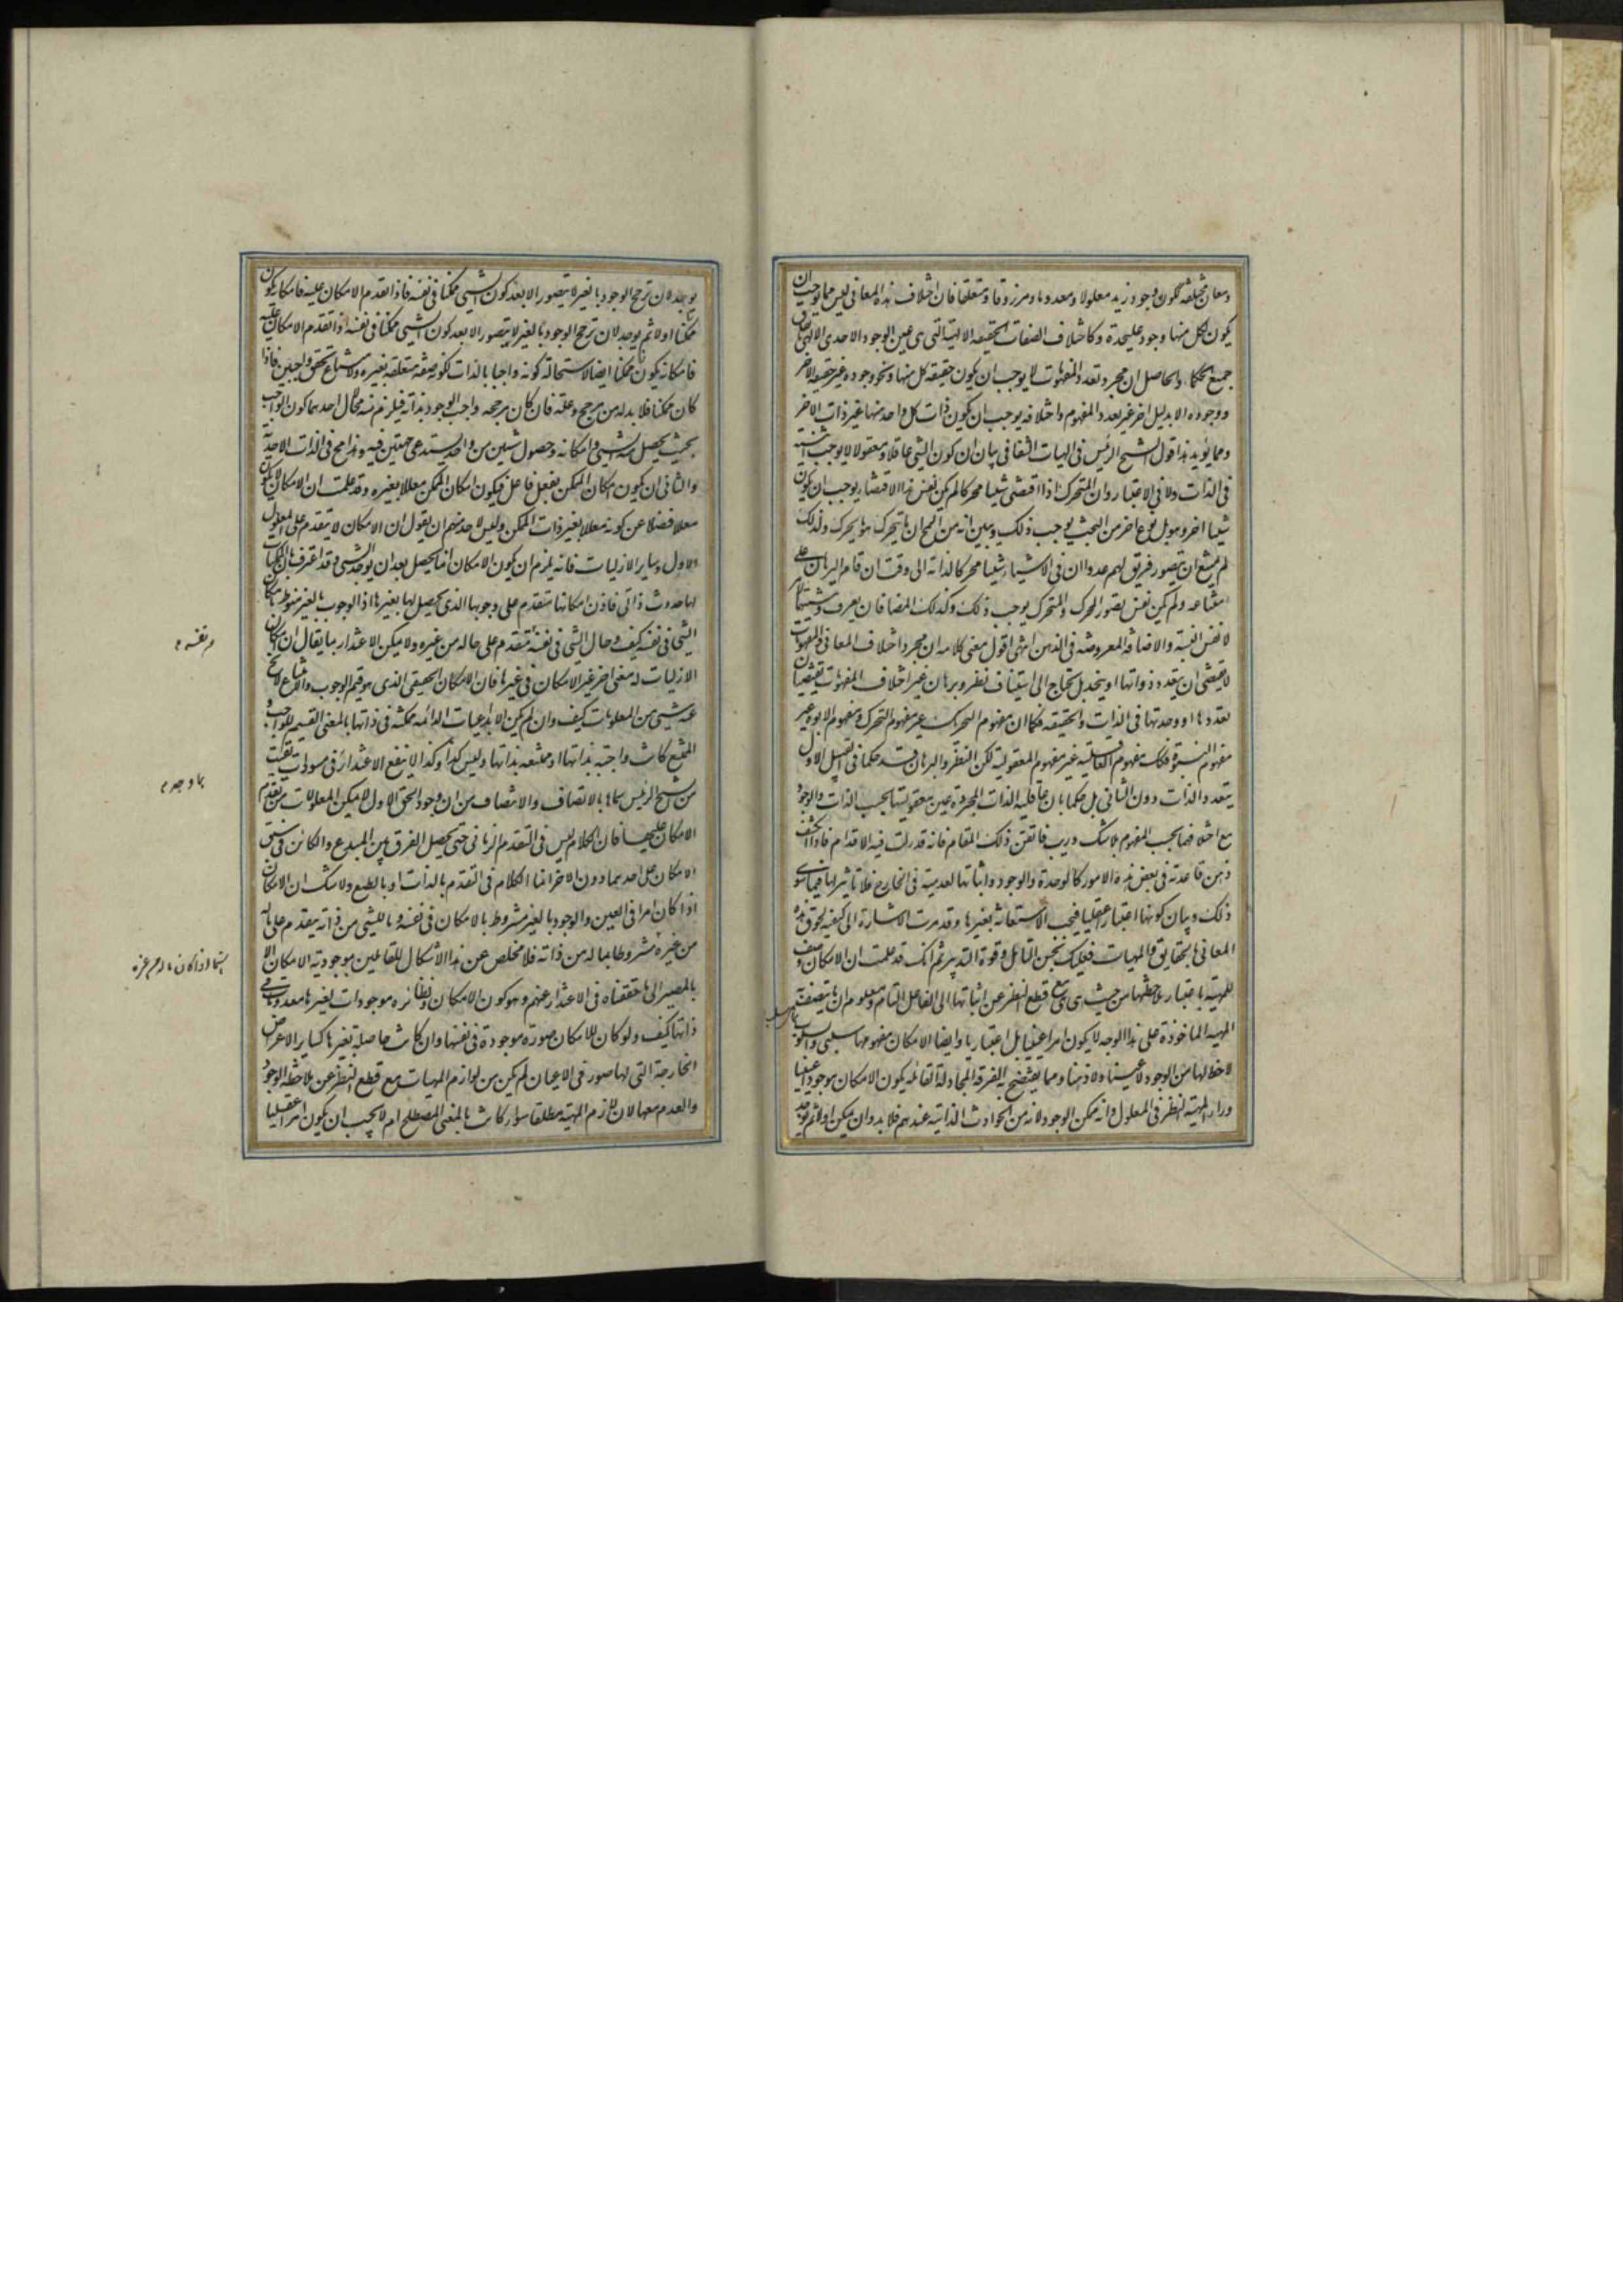 ومعان مختلفة ككون وجود زيد معلولا ومعدوما ومرزوقا ومتعلقا فان اختلاف هذه المعانى ليس مما يوجب ان
يكون لكل منها وجود عليحدة وكاختلاف الصفات الحقيقية الالهية التى هى عين الوجود الاحدى الالهى باتفاق
جميع الحكماء والحاصل ان مجرد تعدد المفهومات لا يوجب ان يكون حقيقة كل منها ونحو وجوده غير حقيقة الاخر
ووجوده الا بدليل اخر غير تعدد المفهوم واختلافه يوجب ان يكون ذات كل واحد منها غير ذات الاخر
ومما يؤيد هذا قول الشيخ الرئيس فى الهيات الشفا فى بيان ان كون الشى عاقلا ومعقولا لا يوجب اثنينية
فى الذات ولا فى الاعتبار وان المتحرك اذا اقتضى شيئا محركا لم يكن نفس هذا الاقتضاء يوجب ان يكون
شيئا اخر او هو بل نوع اخر من البحث يوجب ذلك ويبين انه من المحال ان ما يتحرك هو ما يحرك ولذلك
لم يمتنع ان يتصور فريق لهم عدد ان فى الاشياء شيئا محركا لذاته الى وقت ان قام البرهان على
امتناعه ولم يكن نفس تصور المحرك والمتحرك يوجب ذلك وكذلك المضافان يعرف اثنينيتهما لامر
لا نفس النسبة والاضافة المعروضة فى الذهن انتهى اقول معنى كلامه ان مجرد اختلاف المعانى والمفهومات
لا يقتضى ان يتعدد ذواتها او يتحد بل يحتاج الى استيناف نظر وبرهان غير اختلاف المفهومات يقتضيان
تعددها او وحدتها فى الذات والحقيقة فكما ان مفهوم التحريك غير مفهوم التحرك ومفهوم الابوة غير
مفهوم البنوة فكذلك مفهوم العاقلية غير مفهوم المعقولية لكن النظر والبرهان قد حكما فى القبيل الاول
بتعدد الذات دون الثانى بل حكما بان عاقلية الذات المجردة عين معقوليتها بحسب الذات والوجود
مع اختلافهما بحسب المفهوم بلا شك وريب فاتقن ذلك المقام فانه قد زلت فيه الاقدام فاذا انكشف
وهن قاعدته فى بعض هذه الامور كالوحدة والوجود واثباتها لعدميته فى الخارج فلا تاثير لها فيما سوى
ذلك وبيان كونها اعتبارا عقليا فيجب الاستعانة بغيرها وقد مرت الاشارة الى كيفية لحوق هذه
المعانى بالحقايق والمهيات فعليك بحسن التامل وقوة التدبر ثم انك قد علمت ان الامكان وصف
للمهية باعتبار ملاحظتها من حيث هى هى مع قطع النظر عن انتسابها الى الفاعل التام ومعلوم ان ما يتصف به
المهية الماخوذة على هذا الوجه لا يكون امرا عينيا بل اعتباريا وايضا الامكان مفهومها سلبى والسلوب
لا حظ لها من الوجود لا عينا ولا ذهنا ومما يفتضح به الفرقة المجادلة القائلة بكون الامكان موجودا عينيا
وراء المهية النظر فى المعلول وانه ممكن الوجود لانه من الحوادث الذاتية عندهم فلا بد وان يمكن اولا ثم يوجد
يوجد لان ترجح الوجود بالغير لا يتصور الا بعد كون الشىء ممكنا فى نفسه فاذا تقدم الامكان عليه فامكانه يكون
ممكنا اولا ثم يوجد لان ترجح الوجود بالغير لا يتصور الا بعد كون الشىء ممكنا فى نفسه اذا تقدم الامكان عليه
فامكانه يكون ممكنا ايضا لاستحالة كونه واجبا بالذات لكونه صفة متعلقة بغيره ولامتناع تحقق واجبين فاذا
كان ممكنا فلا بد له من مرجح وعلة فان كان مرجحه واجب الوجود بذاته فيلزم منه محال احدهما كون الواجب
بحيث يحصل منه الشىء وامكانه وحصول شيئين من واحد يستدعى جهتين فيه وهذا مح فى الذات الاحدية
والثانى ان يكون امكان الممكن بفعل فاعل فيكون امكان الممكن معللا بغيره وقد علمت ان الامكان لا يكون
معللا فضلا عن كونه معللا بغير ذات الممكن وليس لاحد منهم ان يقول ان الامكان لا يتقدم على المعلول
الاول وساير الازليات فانه يلزم ان يكون الامكان انما يحصل بعد ان يوجد الشى وقد اعترف بان الكليات
لها حدوث ذاتى فاذن امكانها متقدم على وجوبها الذى يحصل لها بغيرها اذ الوجوب بالغير منوط بامكان
الشى فى نفسه كيف وحال الشى فى نفسه متقدم على حاله من غيره ولا يمكن الاعتذار بما يقال ان امكان
الازليات له معنى اخر غير الامكان فى غيرها فان الامكان الحقيقى الذى هو قسيم الوجوب والامتناع لا يخرج
عنه شىء من المعلومات كيف وان لم يكن الابداعيات الدائمة ممكنة فى ذاتها بالمعنى القسيم للواجب و
الممتنع كانت واجبة بذاتها او ممتنعة بذاتها وليس كذا وكذا لا ينفع الاعتذار فى مسودات بقيت
من الشيخ الرئيس سماها بالاتصاف والانتصاف من ان وجود الحق الاول لا يمكن المعلولات من تقدم
الامكان عليها فان الكلام ليس فى التقدم الزمانى حتى يحصل الفرق بين المبدع والكائن فى سبق
الامكان على احدهما دون الاخر انما الكلام فى التقدم بالذات او بالطبع ولا شك ان الامكان
اذا كان امرا فى العين والوجود بالغير مشروط بالامكان فى نفسه وما للشى من ذاته يتقدم على ماله
من غيره مشروطا بما له من ذاته فلا مخلص عن هذا الاشكال للقائلين بموجودية الامكان الا
بالمصير الى ما حققناه فى الاعتذار عنهم وهو كون الامكان ونظائره موجودات بغيرها معدومات فى
ذاتها كيف ولو كان للامكان صورة موجودة فى نفسها وان كانت حاصلة بغيرها كساير الاعراض
الخارجة التى لها صور فى الاعيان لم يكن من لوازم المهيات مع قطع النظر عن ملاحظة الوجود
والعدم معها لان لازم المهية مطلقا سواء كانت بالمعنى المصطلح ام لا يجب ان يكون امرا عقليا